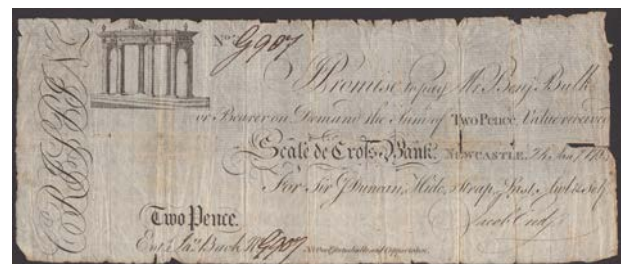 No. G907
Promise to pay Mr. Benj. Bulk
or Bearer on Demand the Sum of Two Pence, Value received
Scale de Cross Bank. Newcastle, 24 Jan.
For Sir G Duncan, Hide, Strap, Last, Awl & Self
Two Pence. Jacob
Entd. Jas. Back No. G907